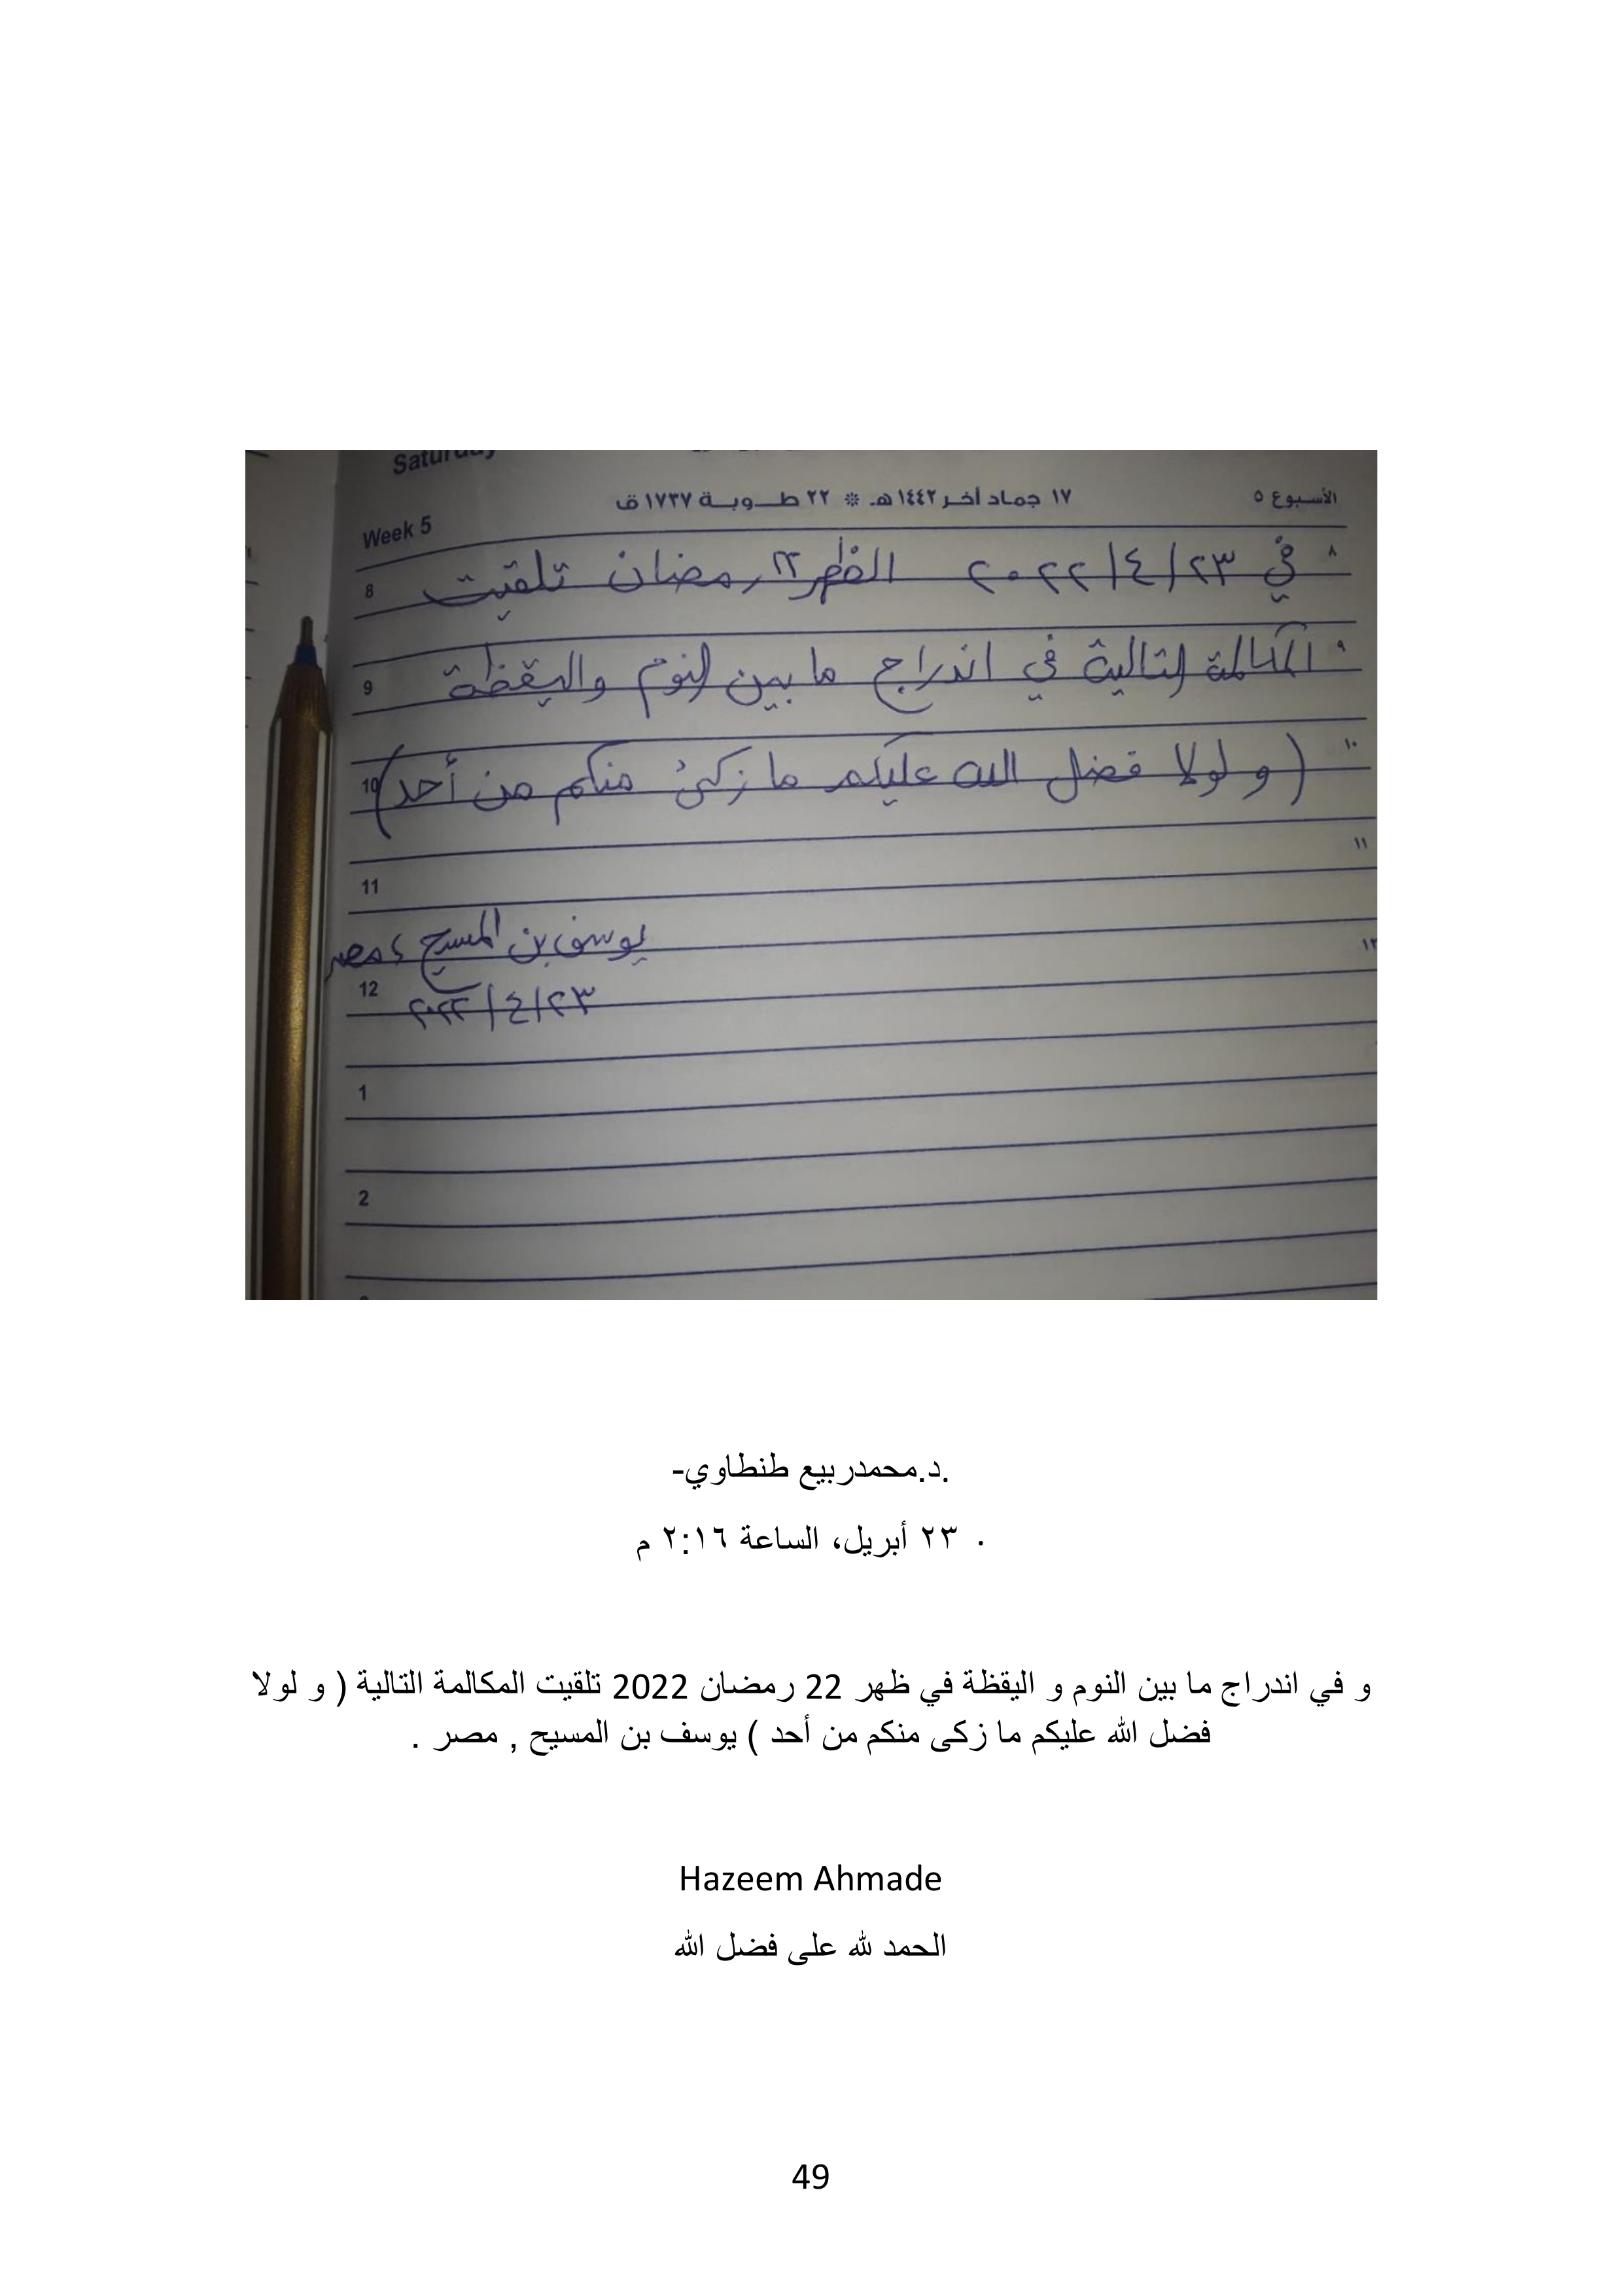 Saturday
١٧ جماد أخر ١٤٤٢هـ * ٢٢ طـــوبـــة ١٧٣٧ق
الأسبوع ٥
Week 5
٨
في ٢٣/٤/٢٠٢٢ الظهر ٢٢ رمضان تلقيت
8
٩
المكالمة التالية في اندراج ما بين النوم واليقظة
9
١٠
(و لولا فضل الله عليكم ما زكىٰ منكم من أحد)
10
١١
11
يوسف بن المسيح، مصر
١٢
12
٢٣/٤/٢٠٢٢
1
2
.د.محمدربيع طنطاوي-
· ٢٣ أبريل، الساعة ٢:١٦ م
و في اندراج ما بين النوم و اليقظة في ظهر 22 رمضان 2022 تلقيت المكالمة التالية ( و لولا
فضل الله عليكم ما زكى منكم من أحد ) يوسف بن المسيح , مصر .
Hazeem Ahmade
الحمد لله على فضل الله
49